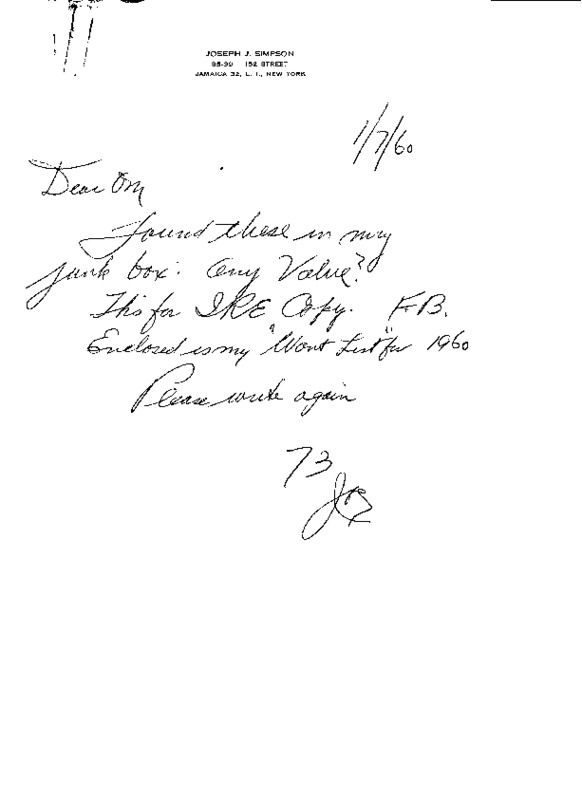 JOSEPH J. SIMPSON
95-99 152 STREET
JAMAICA 32, L. I., NEW YORK
1/7/60
Dear Om
Found these in my
junk box. Any Value?
Th's for IRE Copy. F.B.
Enclosed is my "Want List" for 1960
Please write again
73
Joe